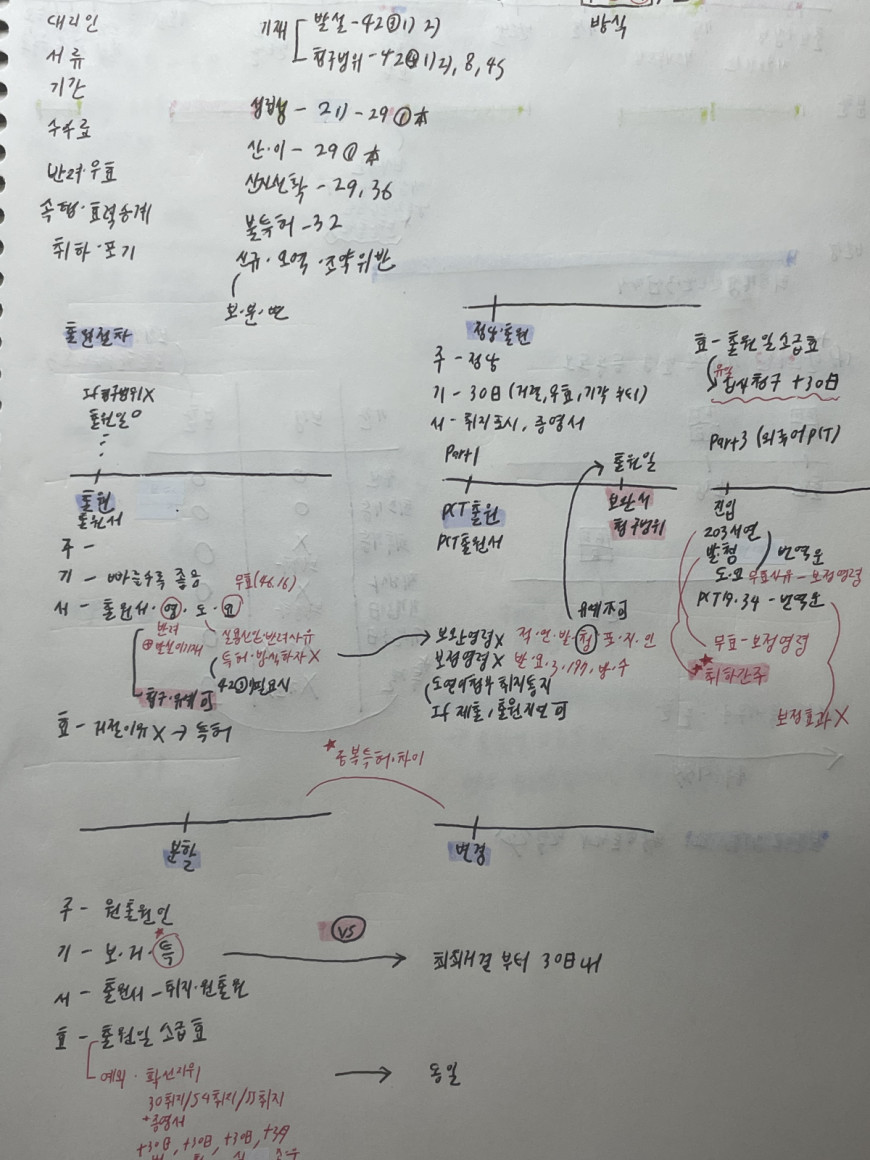 대리인
서류
기간
수수료
반려·무효
속행·효력승계
취하·포기
방식
기재
발설 - 42③1) 2)
청구범위 - 42④1)2), 8, 45
성립성 - 2 1) - 29①本
산·이 - 29①本
신진선확 - 29, 36
불특허 - 32
신규·오역·조약위반
보·분·변
출원절차
If 청구범위X
출원일O
출원
출원서
주 -
기 - 빠를수록 좋음
서 - 출원서·명·도·요
무효(46.16)
반려
실용신안 반려사유
특허·방식하자 X
42③1)필요시
청구·유예 可
효 - 거절이유 X → 특허
정당·출원
주 - 정당
기 - 30日 (거절, 무효, 기각 부터)
서 - 취지표시, 증명서
효 - 출원일 소급효
유일
심사청구 +30日
Part 1
PCT출원
PCT출원서
출원일
보완서
청구범위
유예不可
보완명령X 적·언·발·청·포·지·인
보정명령X 반·요·3, 197, 방·수
도면미첨부 취지통지
If 제출, 출원지연 可
Part 3 (외국어 PCT)
진입
203서면
발·청
도·요
번역문
무효사유 - 보정명령
PCT19·34 - 번역문
무효 - 보정명령
취하간주
보정효과 X
중복특허·차이
분할
변경
주 - 원출원인
기 - 보·거·특
VS
최초거절 부터 30日내
서 - 출원서 - 취지·원출원
효 - 출원일 소급효
예외·확선지위
30취지/54취지/55취지
+증명서
동일
+30日, +30日, +30日, +3月